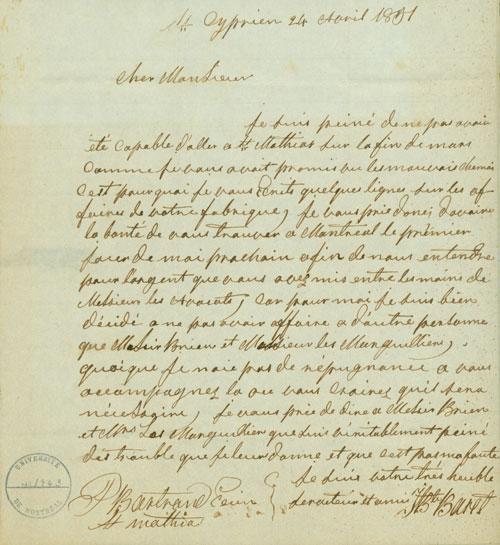 St Cyprien 24 Avril 1831
Cher Monsieur
Je suis peiné de ne pas avoir
été capable d'aller a St Mathias sur la fin de mars
comme je vous avait promis vu les mauvais chemins
c'est pourquoi je vous Écrits quelques lignes sur les af
faires de votre fabrique, je vous prie donc d'avoir
la bonté de vous trouver a Montréal le prémier
jour de mai prochain afin de nous entendre
pour l'argent que vous avez mis entre les mains de
Messieur les Avocats, car pour moi je suis bien
décidé a ne pas avoir affaire a d'autre personne
que Messir Brien et Messieur les Marguilliers,
quoique je n'aie pas de répugnance a vous
accompagnez la ou vous croirez qu'il sera
nécessaire, je vous prie de dire a Messir Brien
et Mrs Les Marguillier que suis véritablement peiné
des trouble que je leur donne et que c'est pas ma faute
Je suis votre très humble
serviteur et ami
P Bertrand Ecuir
St Mathia
UNIVERSITÉ
DE MONTRÉAL